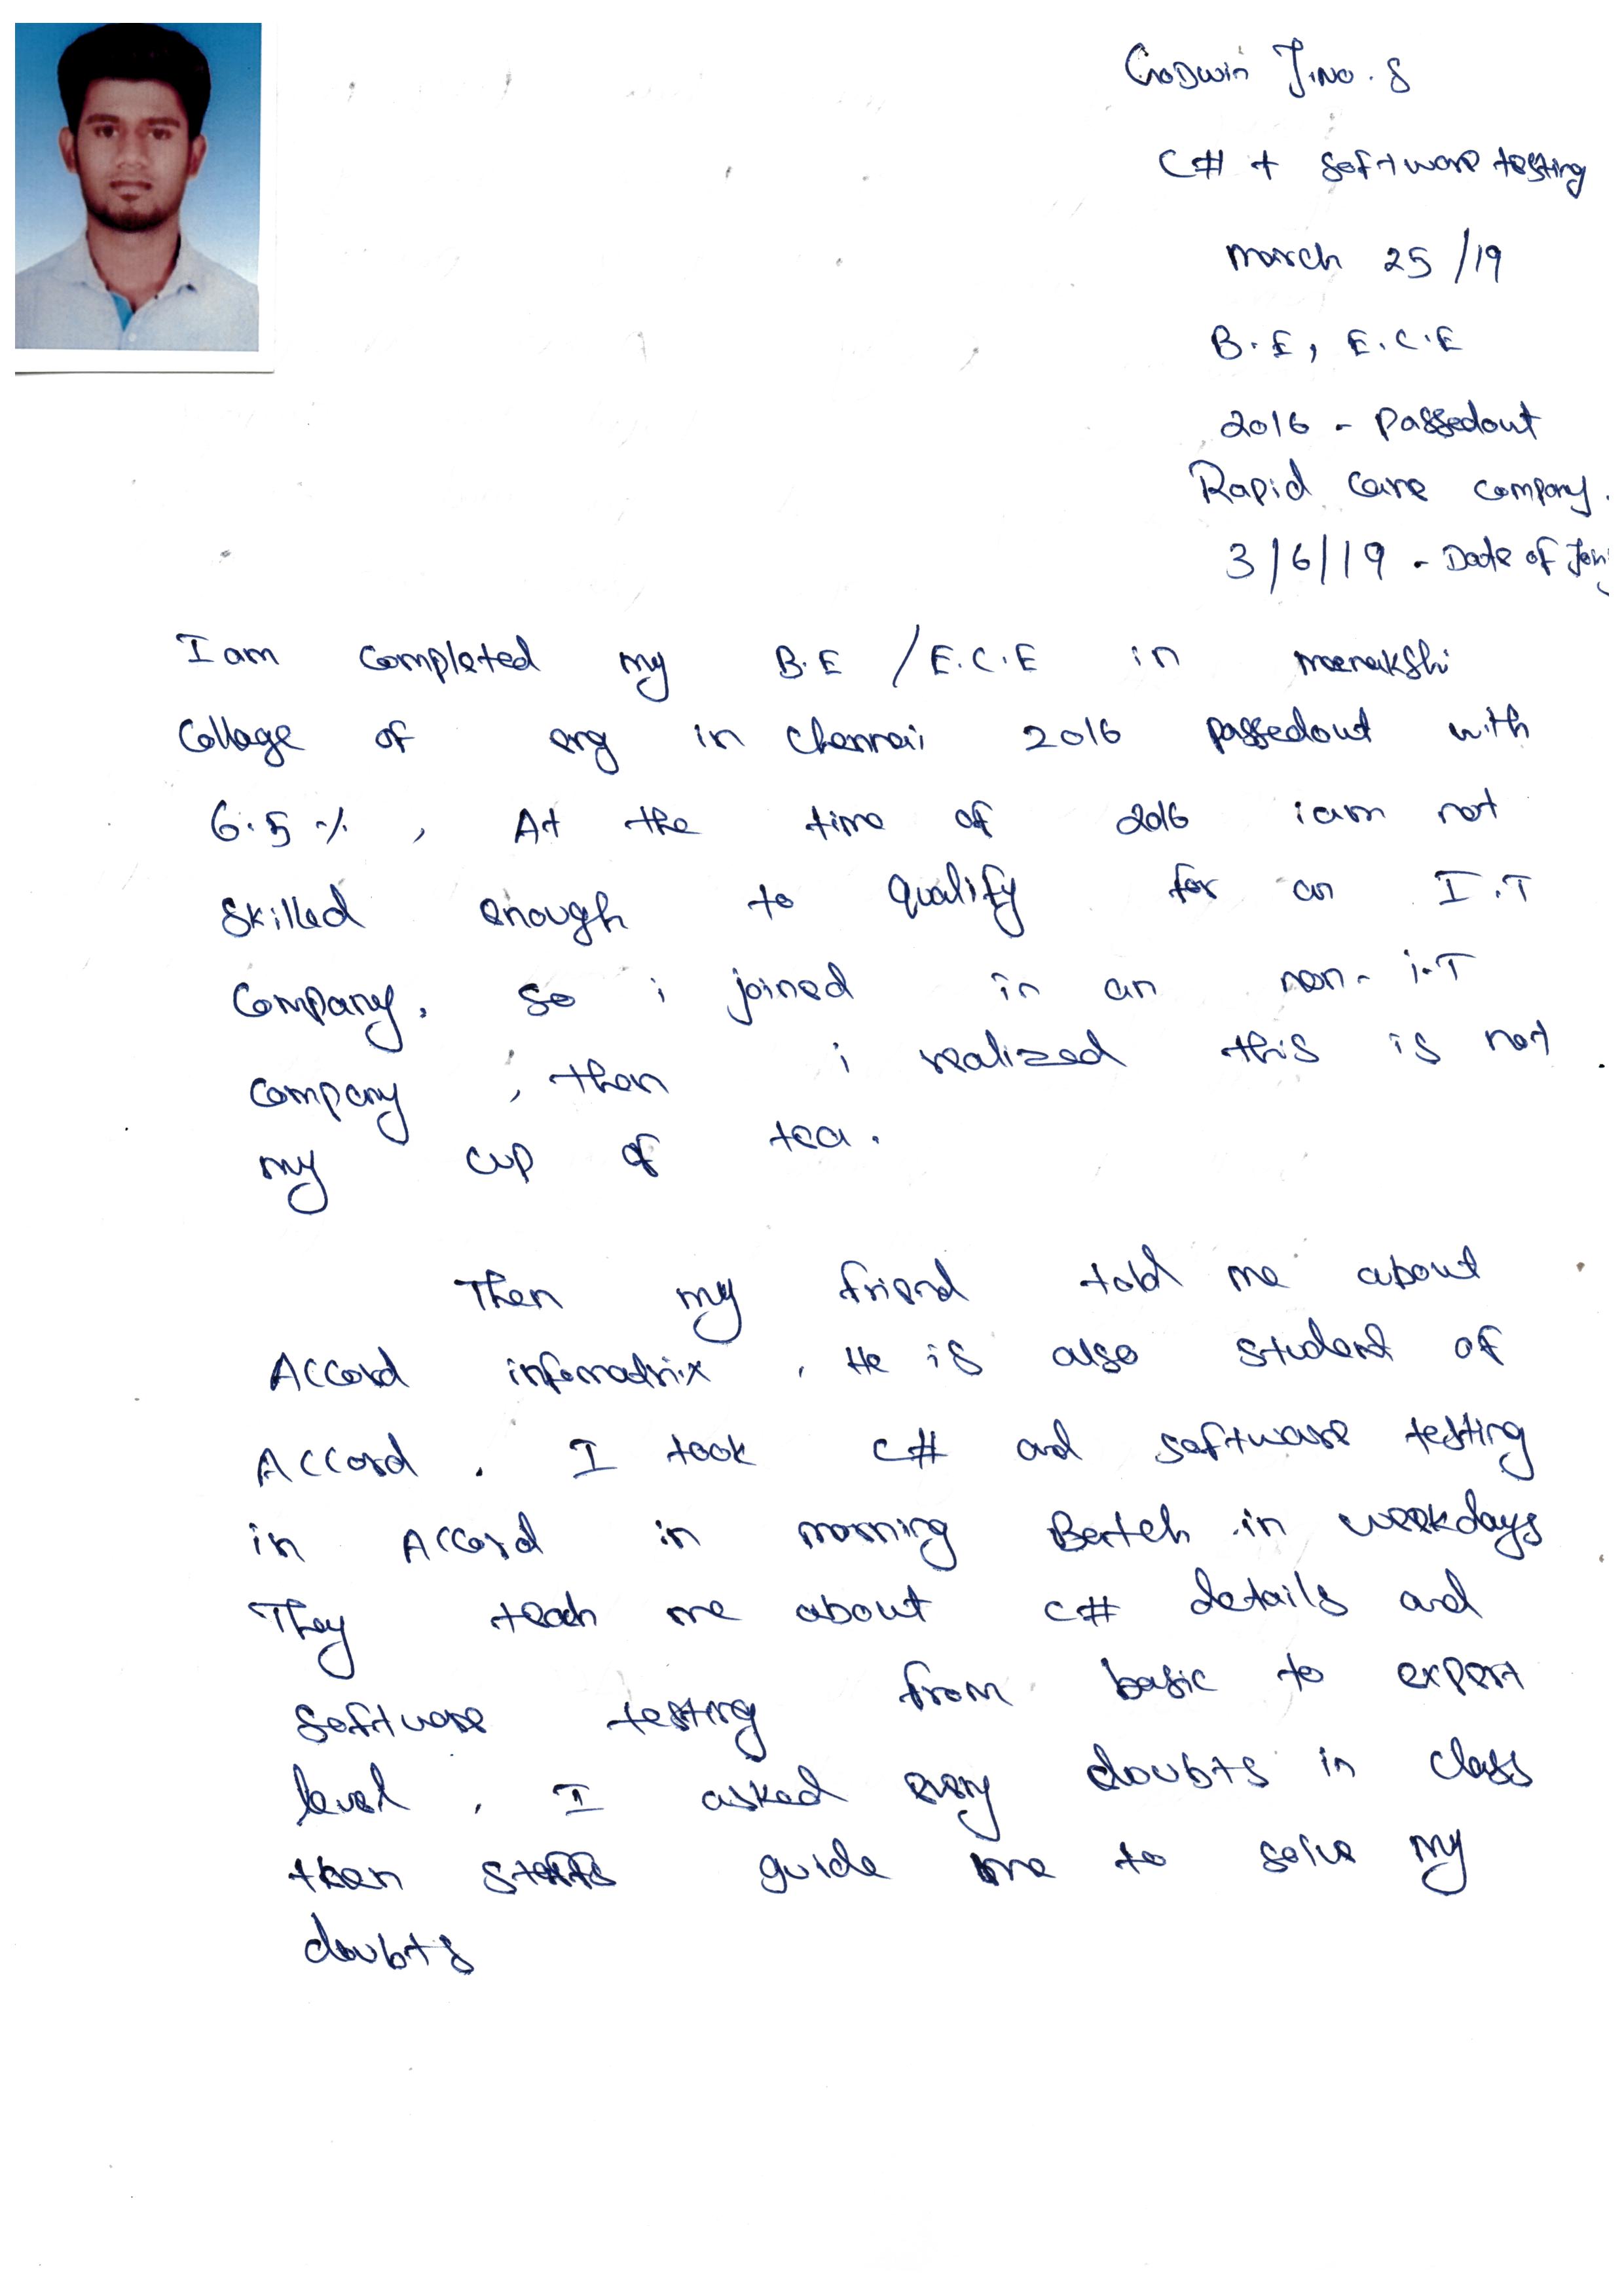 Godwin Jino. S
C# + software testing
march 25/19
B.E, E.C.E
2016 - Passedout
Rapid Care Company.
3/6/19 - Date of
I am completed my B.E / E.C.E in meenakshi
College of eng in chennai 2016 passedout with
6.5 %, At the time of 2016 i am not
skilled enough to qualify for an I.T
Company, so i joined in an non-i.T
company, then i realized this is not
my cup of tea.
Then my friend told me about
Accord infomatrix. He is also student of
Accord. I took C# and software testing
in Accord in morning Batch in weekdays
They teach me about C# details and
software testing from basic to expert
level. I asked every doubts in class
then staffs guide me to solve my
doubts